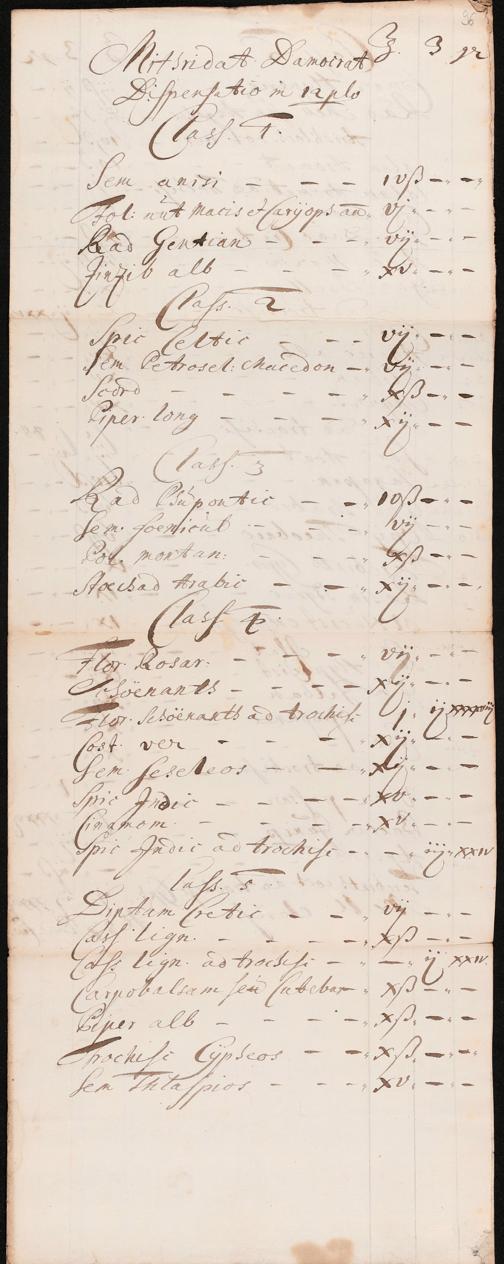 Mitsridat Damocrat ℥. ʒ gr
Dispensatio in 12plo
Class. 1.
Sem anisi - - - ivß - - -
Fol. nut Macis et Caryops an. vj - - -
Rad Gentian - - - vij - - -
Zinzib alb - - - xv - - -
Class. 2
Spic Celtic - - - vij - - -
Sem Petrosel: Macedon - vij - - -
Scord - - - xß - - -
Piper long - - - xij - - -
Class. 3
Rad - - - ivß - - -
Sem. foenicul - - - vij - - -
Pol. montan: - - - xß - - -
Stoechad Arabic - - - xij - - -
Class 4
Flor Rosar. - - - vij - - -
Schoenants - - - xij - - -
Flor. Schoenants ad trochisc j. ij
Cost ver - - - xij - - -
Sem Seseleos - - - xij - - -
Spic Indic - - - xv - - -
Cinamom - - - xv - - -
Spic Indic ad trochisc - - - iij xxiv
Class. 5
Diptam Cretic - - - vij - - -
Cass. lign. - - - xß - - -
Cass. lign. ad trochisc - - - ij xxiv.
Carpobalsam seu Cubebar - xß - - -
Piper alb - - - xß - - -
Trochisc Cypheos - - - xß - - -
Sem Thlaspios - - - xv - - -